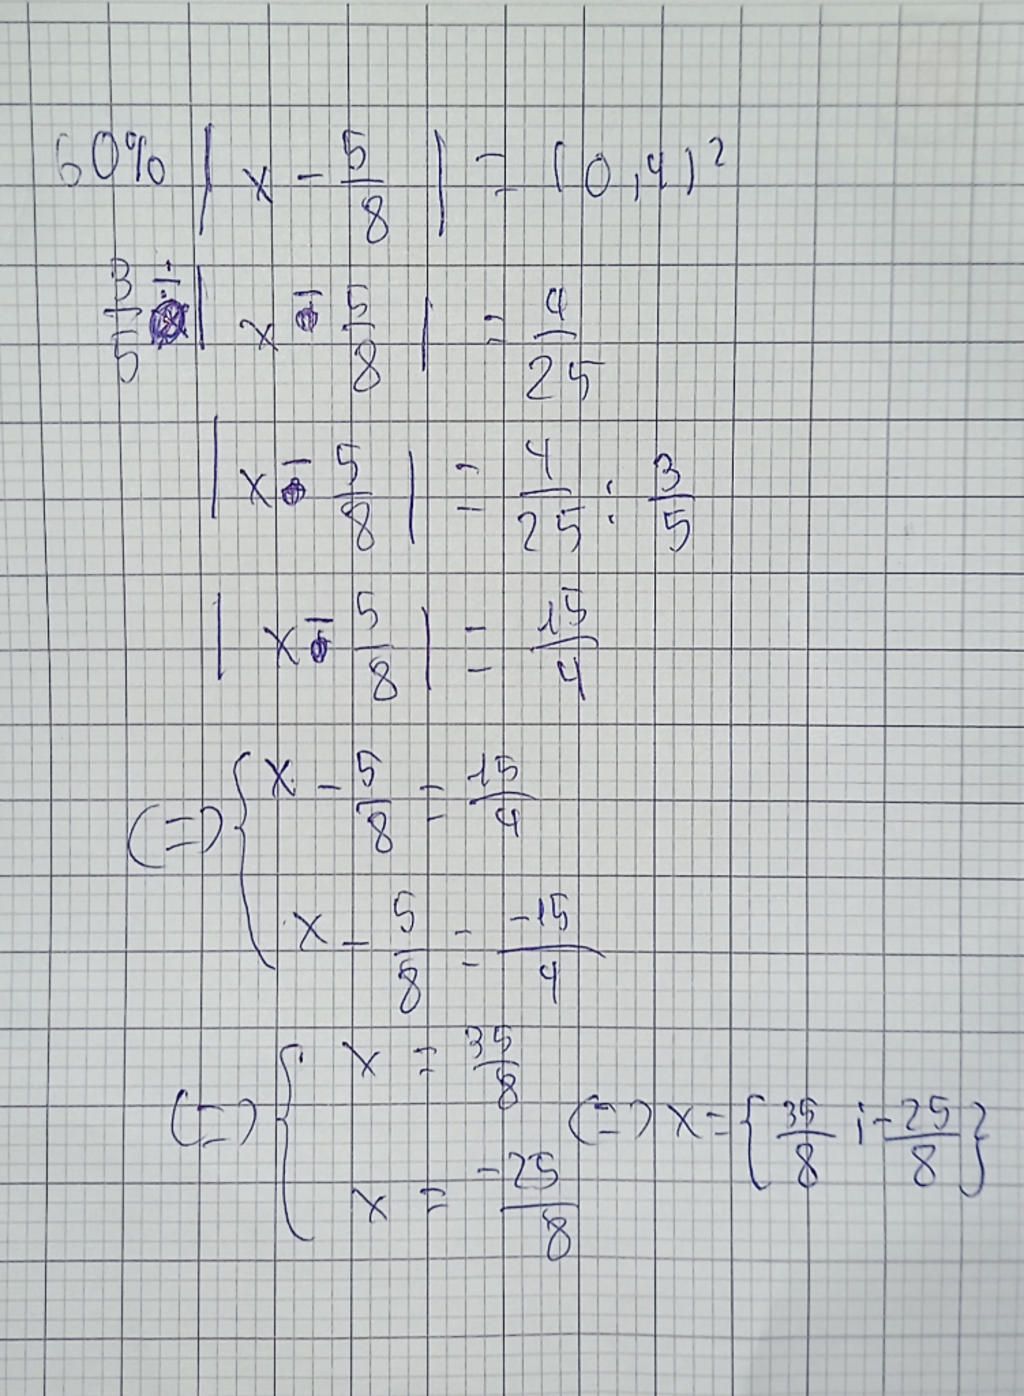 60% | x - 5/8 | = (0,4)²
3/5 ÷ | x - 5/8 | = 4/25
| x - 5/8 | = 4/25 : 3/5
| x - 5/8 | = 15/4
(=) { x - 5/8 = 15/4
x - 5/8 = -15/4
(=) { x = 35/8 (=) x = { 35/8 ; -25/8 }
x = -25/8